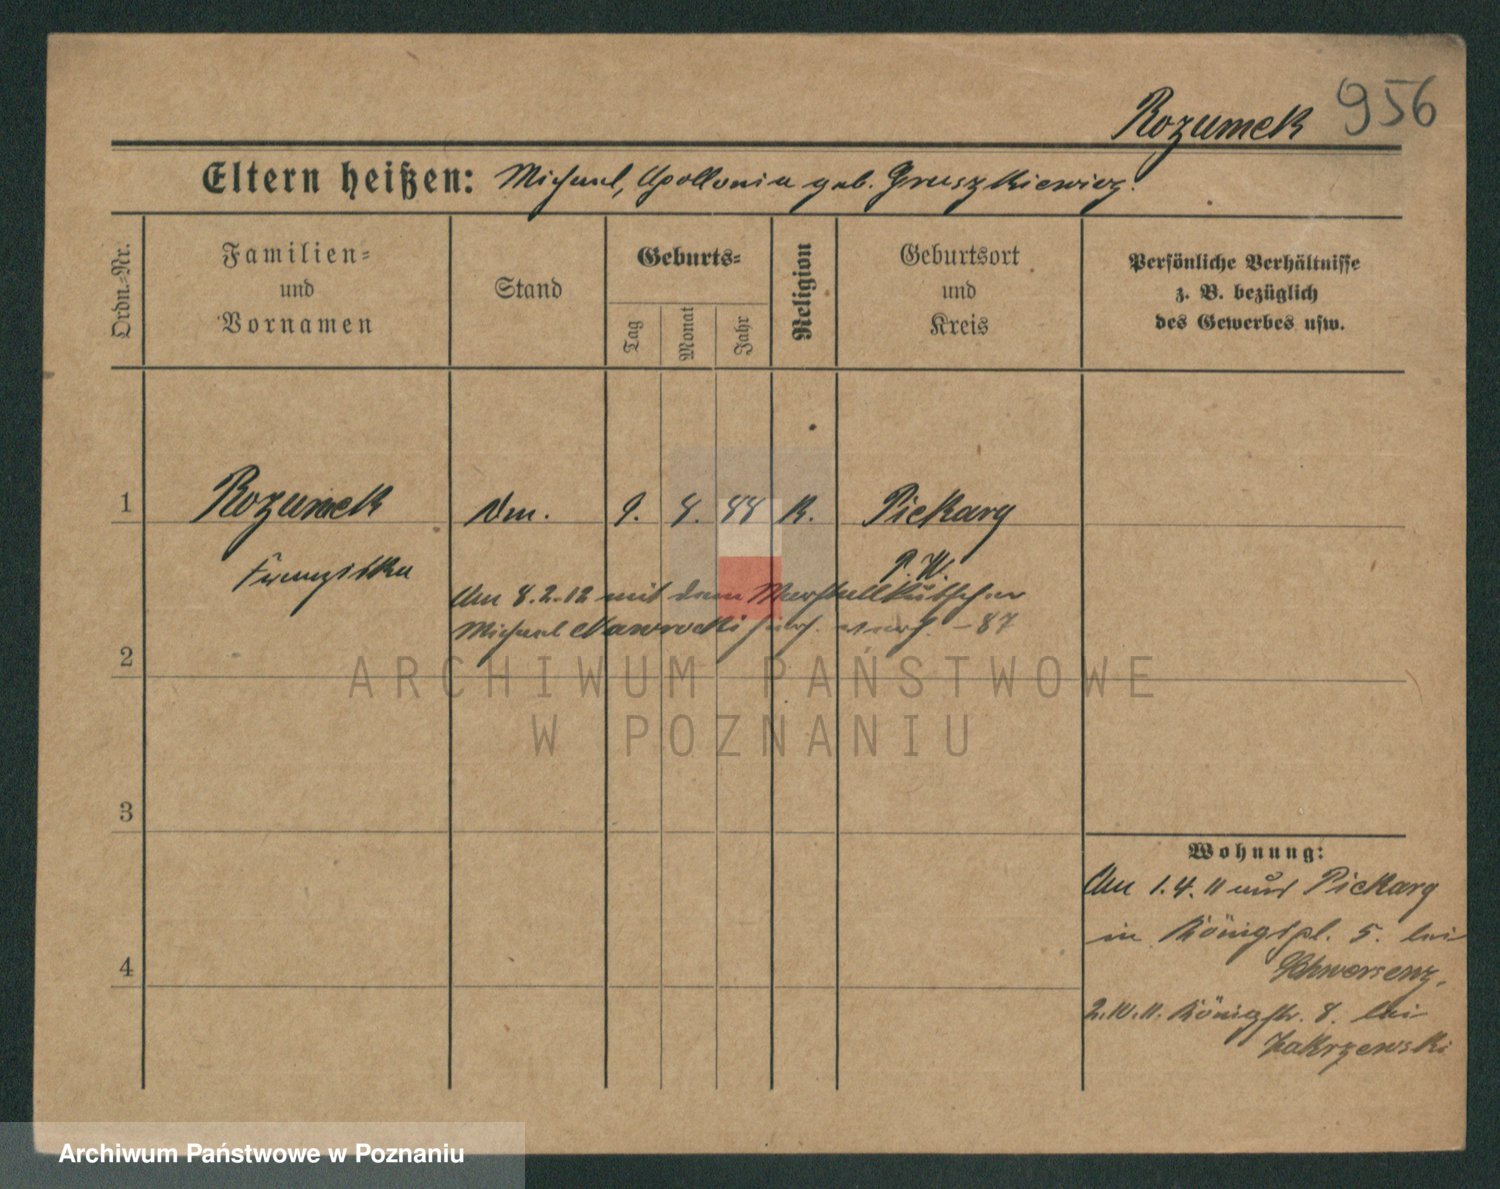 Rozumek 956
Eltern heißen: Michael, Apollonia geb. Gruszkiewicz.
Ordn.-Nr.
Familien-
und
Vornamen
Stand
Geburts-
Tag
Monat
Jahr
Religion
Geburtsort
und
Kreis
Persönliche Verhältnisse
z. B. bezüglich
des Gewerbes usw.
1 Rozumek 9. 8. 88 K. Piekary
Franziska P. W.
Am 8.2.12 mit dem Marstallkutscher
Michael Nawrocki - 87
2
ARCHIWUM PAŃSTWOWE
W POZNANIU
3
4
Wohnung:
Am 1.4.11 aus Piekary
in Königspl. 5. bei
Schwersenz,
2.10.11. Königstr. 8. bei
Zakrzewski
Archiwum Państwowe w Poznaniu